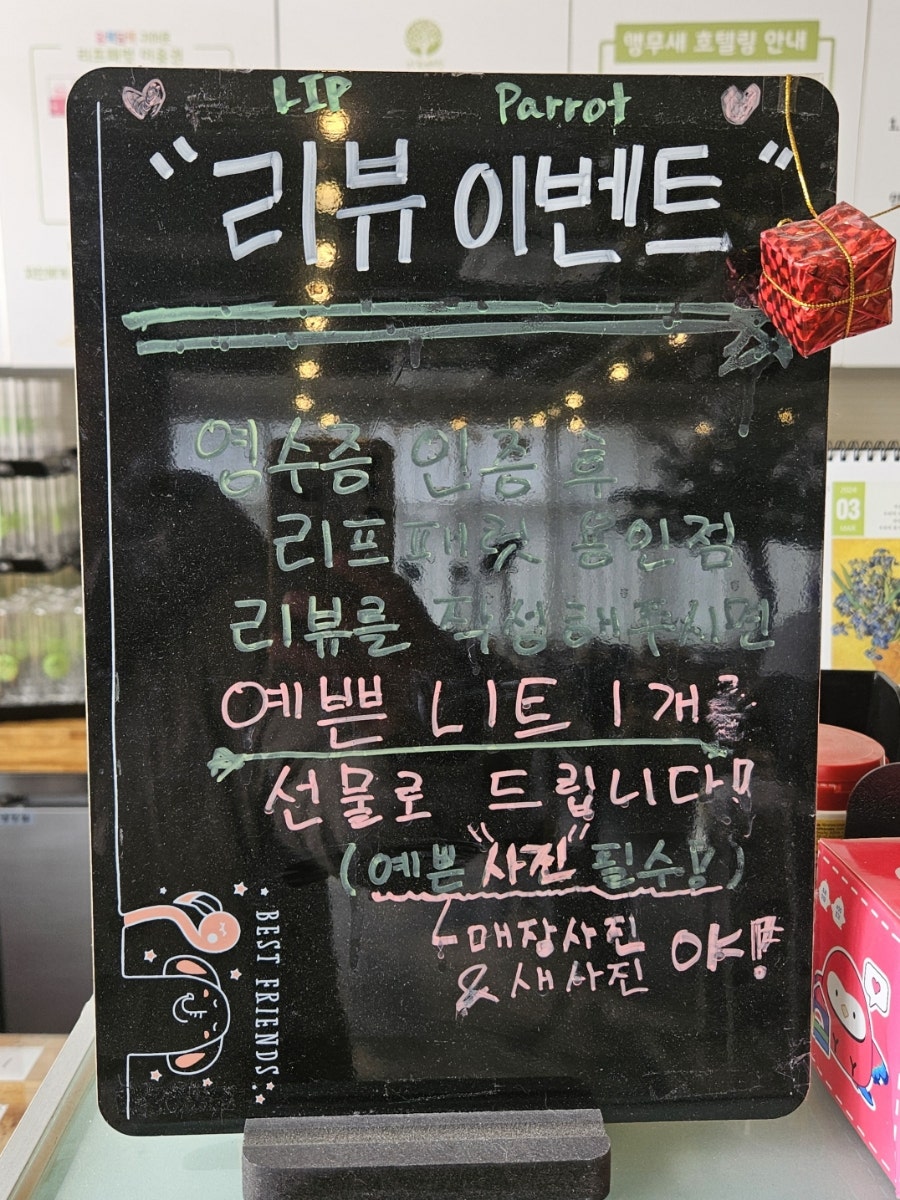 앵무새 호텔링 안내
LIP Parrot
"리뷰 이벤트"
영수증 인증 후
리프패럿 용인점
리뷰를 작성해주시면
예쁜 니트 1개를
선물로 드립니다!
(예쁜 "사진" 필수!)
매장사진
& 새사진 야!
BEST FRIENDS
03